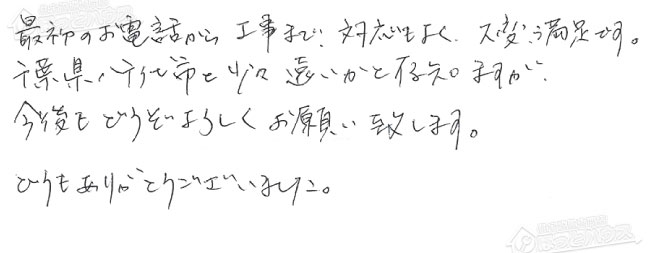 最初のお電話から工事まで、対応もよく、大変満足です。
千葉県八千代市と少々遠いかと存知ますが、
今後もどうぞよろしくお願い致します。
どうもありがとうございました。